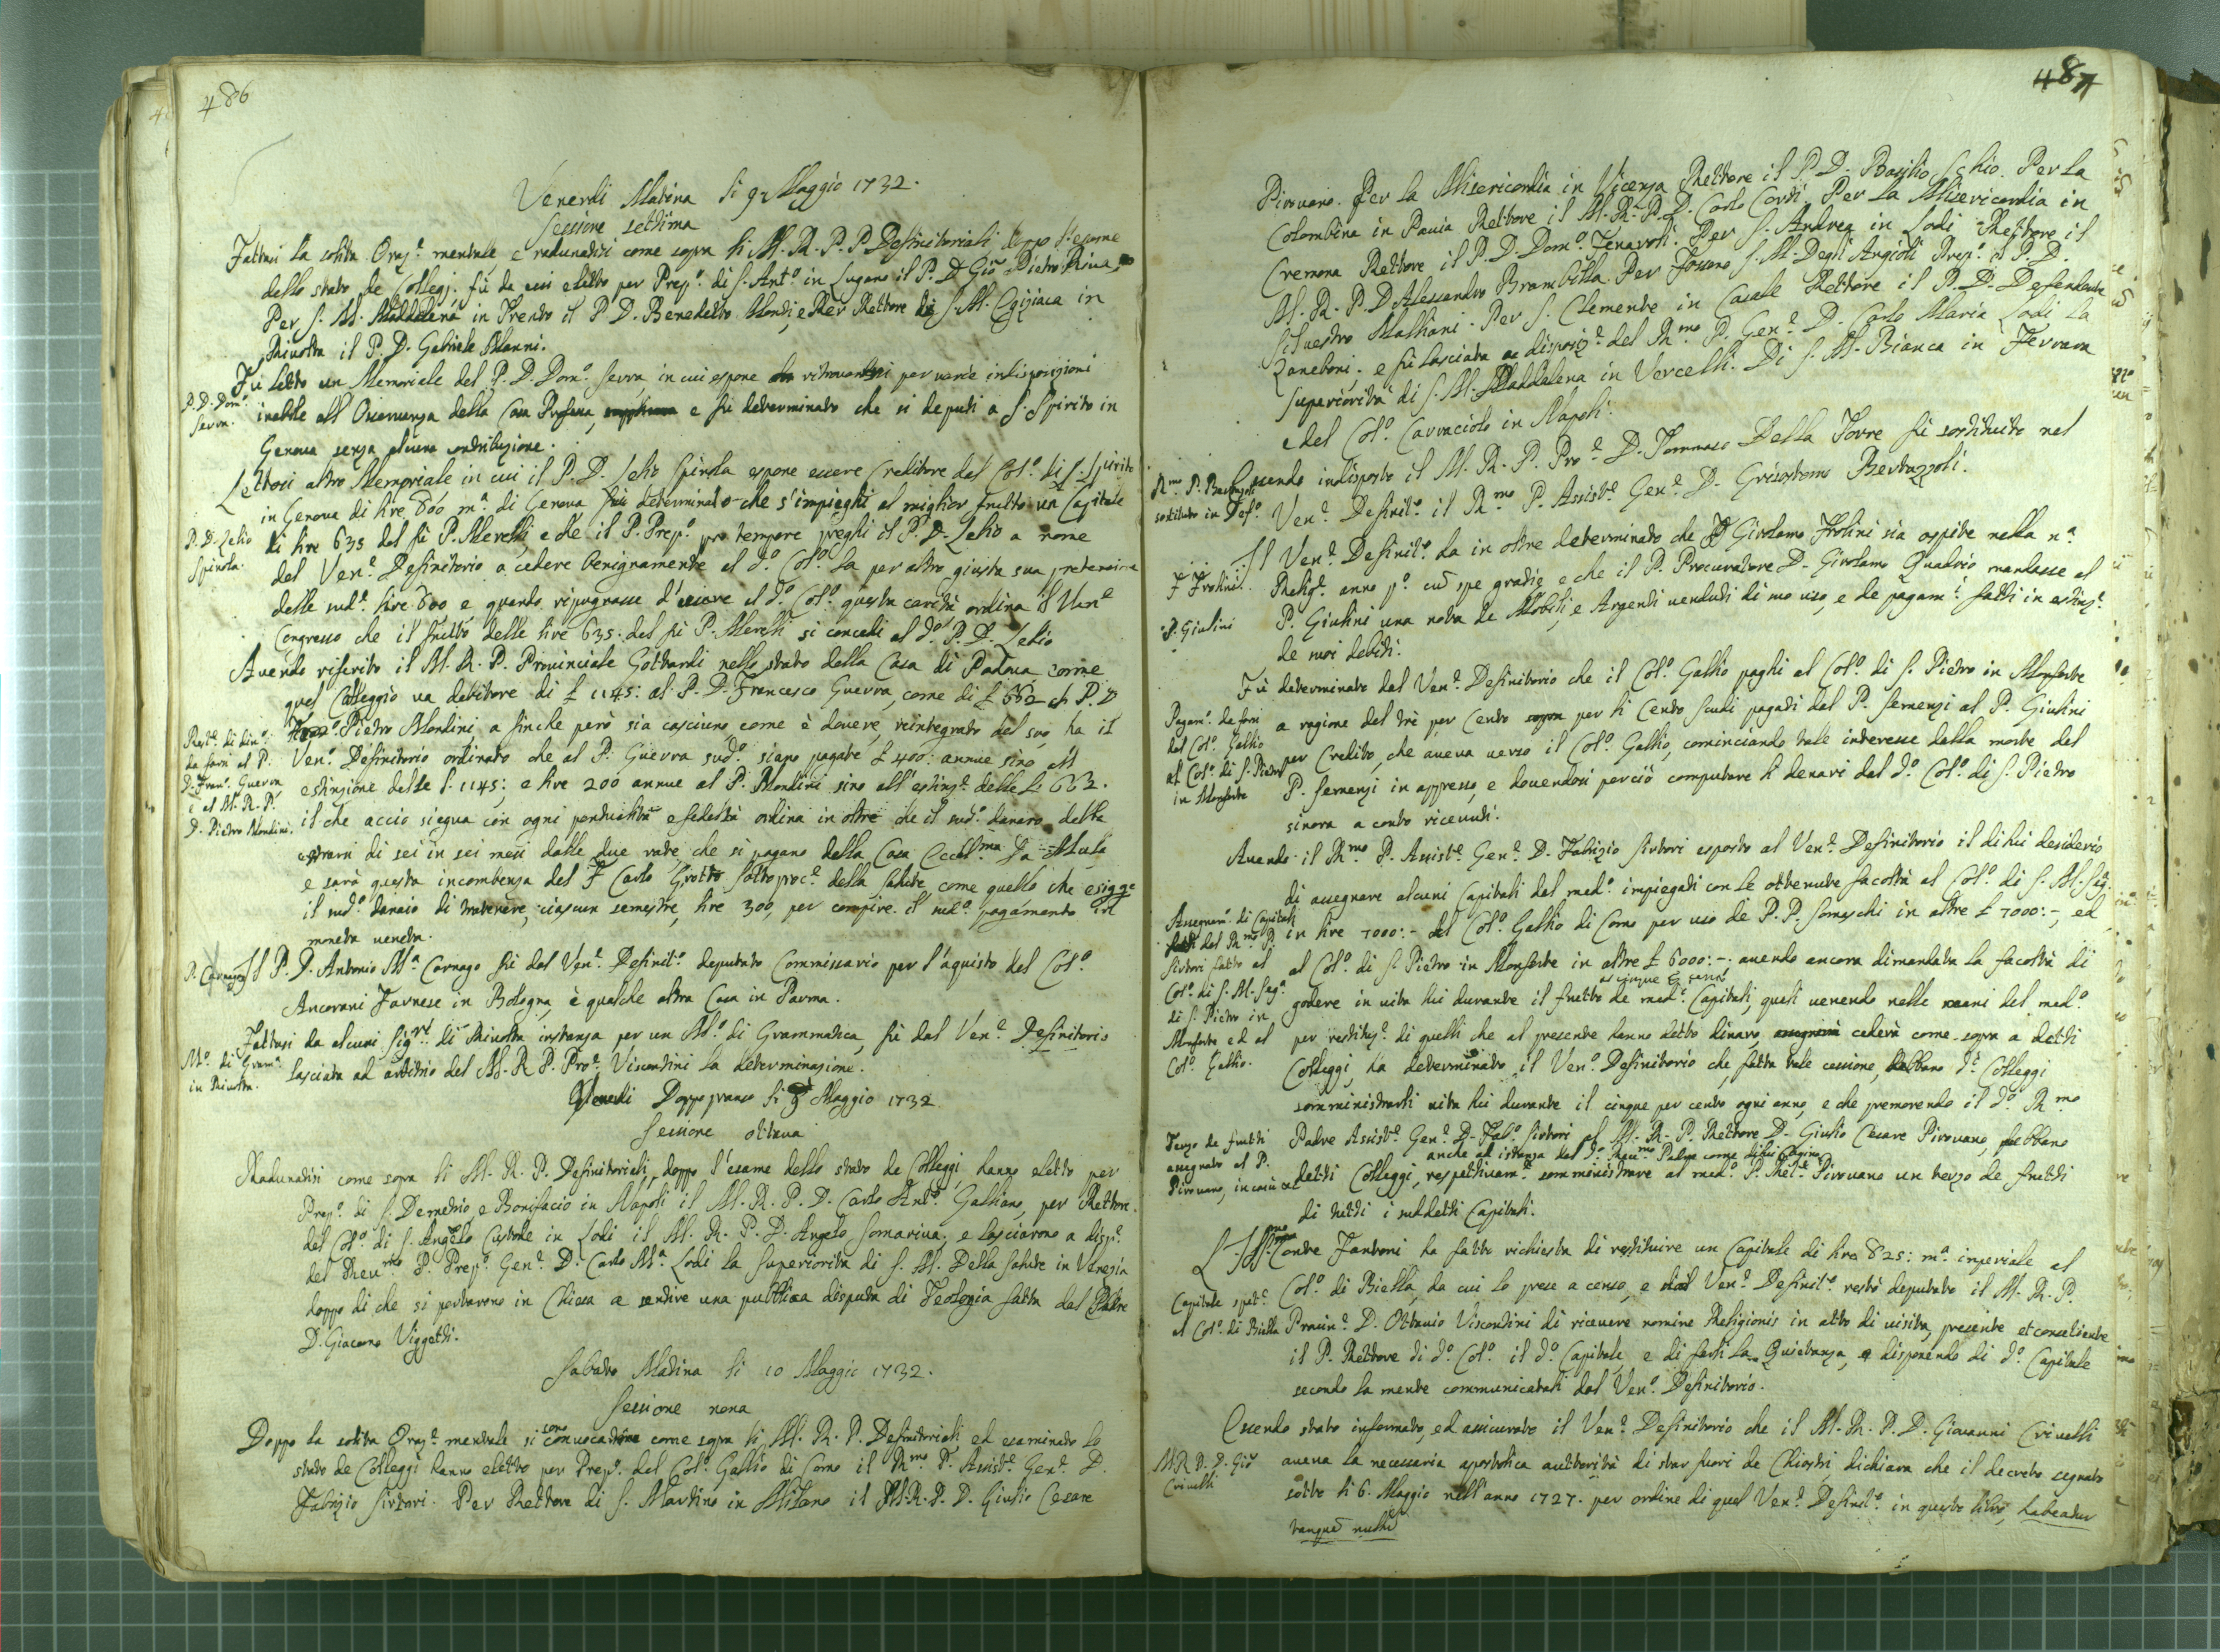 486
Venerdi Matina li 9 Maggio 1732.
Sessione settima
Fattasi la solita Oraz.e mentale e radunatisi come sopra li M. R. P. P. Definitoriali doppo l'esame
dello stato de Collegj. fù da essi eletto per Prep.o di S. Ant.o in Lugano il P. D. Gio Pietro Riva,
Per S. M. Maddalena in Trento il P. D. Benedetto Mondi, e Per Rettore di S. M. Egiziaca in
Rivolta il P. D. Gabriele Manni.
P. D. Dom.o
Serra.
Fù letto un Memoriale del P. D. Dom.o Serra, in cui espone ritrovarsi per varie indisposizioni
inabile all' Osservanza della Casa Professa, e fù determinato che si deputi a S. Spirito in
Genova senza alcuna contribuzione.
Lettosi altro Memoriale in cui il P. D. Lelio Spinola espone essere Creditore del Col.o di S. Spirito
in Genova di lire 600 m.a di Genova fù determinato che s'impieghi al miglior frutto un Capitale
P. D. Lelio
Spinola.
di lire 635 del fù P. Merelli, e che il P. Prep.o pro tempore preghi il P. D. Lelio a nome
del Ven.e Definitorio a cedere benignamente al d.o Col.o la per altro giusta sua pretensione
delle sud.e lire 600 e quando ripugnasse d'usare al d.o Col.o questa carità ordina il Ven.e
Congresso che il frutto delle lire 635. del fù P. Merelli si concedi al d.o P. D. Lelio
Avendo riferito il M. R. P. Provinciale Gottardi nello stato della Casa di Padova come
quel Colleggio va debitore di £ 1145: al P. D. Francesco Guerra, come di £ 662 al P. D.
Pietro Mondini, a finche però sia casciuno come è dovere, reintegrato del suo, ha il
Rest.e di din.o
da farsi al P.
D. Fran.o Guerra
e al M. R. P.
D. Pietro Mondini.
Ven.o Definitorio ordinato che al P. Guerra sud.o siano pagate £ 400: annue sino all
estinzione delle £. 1145; e lire 200 annue al P. Mondini sino all' estinz.e delle £. 662.
il che accio siegua con ogni pontualità e fedeltà ordina in oltre che il sud.o danaro debba
estraersi di sei in sei mesi dalle due rate, che si pagano dalla Casa Eccell.ma Da Mula
e sarà questa incombenza del F. Carlo Grotto sottoproc.e della Salute, come quello che esigge
il sud.o danaio di tratenere, ciascun semestre, lire 300, per compire il sud.o pagamento in
moneta veneta.
P. Carnago
Il P. D. Antonio M.a Carnago fù dal Ven.e Definit.o deputato Commissario per l'aquisto del Col.o
Ancorani Farnese in Bologna, è qualche altra Casa in Parma.
Fattasi da alcuni Sig.ri di Rivolta instanza per un M.o di Grammatica, fù dal Ven.e Definitorio
M.o di Gram.a
in Rivolta.
lasciata ad arbitrio del M. R. P. Pro.e Viscondini la determinazione.
Venerdi Doppo pranso li 9 Maggio 1732
Sessione ottava
Radunatisi come sopra li M. R. P. Definitoriali, doppo l'esame dello stato de Colleggi, hanno eletto per
Prep.o di S. Demetrio, e Bonifacio in Napoli il M. R. P. D. Carlo Ant.o Galliano, per Rettore
del Col.o di S. Angelo Custode in Lodi il M. R. P. D. Angelo Somariva; e lasciarono a disp.e
del Reu.mo P. Prep.o Gen.e D. Carlo M.a Lodi la superiorità di S. M. Della Salute in Venezia
doppo di che si portarono in Chiesa a sentire una pubblica disputa di Teologia fatta dal Padre
D. Giacomo Viggetti.
Sabato Matina li 10 Maggio 1732.
Sessione nona
Doppo la solita Oraz.e mentale si sono convocati come sopra li M. R. P. Definitoriali ed esaminato lo
stato de Colleggi hanno eletto per Prep.o del Col.o Gallio di Como il R.mo P. Assist.e Gen.e D.
Fabrizio Sirtori. Per Rettore di S. Martino in Milano il M. R. P. D. Giulio Cesare
487
Pirovano. Per la Misericordia in Vicenza Rettore il P. D. Basilio Schio. Per la
Colombina in Pavia Rettore il M. R. P. D. Carlo Corti. Per la Misericordia in
Cremona Rettore il P. D. Dom.o Tenaroli. Per S. Andrea in Lodi Rettore il
M. R. P. D. Alessandro Brambilla. Per Fossano S. M. Degli Angioli Prep.o il P. D.
Silvestro Malliani. Per S. Clemente in Casale Rettore il P. D. Defendente
Zaneboni; e fù lasciata a disposiz.e del R.mo P. Gen.e D. Carlo Maria Lodi la
superiorità di S. M. Maddalena in Vercelli. Di S. M. Bianca in Ferrara
e del Col.o Carracciolo in Napoli.
R.mo P. Bertazzoli
sostituto in Def.o
Essendo indisposto il M. R. P. Pro.e D. Tommaso Della Torre fù sostituito nel
Ven.e Definit.o il R.mo P. Assist.e Gen.e D. Grisostomo Bertazzoli.
Il Ven.e Definit.o ha in oltre determinato che Girolamo Frolini sia ospite nella n.a
F. Frolini.
Relig.e anno p.o cũ spe gradie e che il P. Procuratore D. Girolamo Quadrio mandasse al
P. Giulini
P. Giulini una nota de Mobili, e Argenti venduti di suo uso, e de pagam.i fatti in estinz.e
de suoi debiti.
Fù determinato dal Ven.e Definitorio che il Col.o Gallio paghi al Col.o di S. Pietro in Monforte
Pagam.o da farsi
dal Col.o Gallio
al Col.o di S. Pietro
in Monforte
a ragione del trè per Cento per li Cento scudi pagati dal P. Semenzi al P. Giulini
per Credito, che aveva verso il Col.o Gallio, cominciando tale interesse dalla morte del
P. Semenzi in appresso, e dovendosi perciò computare li denari dal d.o Col.o di S. Pietro
sinora a conto ricevuti.
Avendo il R.mo P. Assist.e Gen.e D. Fabrizio Sirtori esposto al Ven.e Definitorio il di lui desiderio
di assegnare alcuni Capitali dal med.o impiegati con le ottenute facoltà al Col.o di S. M. Seg.a
Assegnam.o di Capitali
dal R.mo P.
Sirtori fatto al
Col.o di S. M. Seg.a
di S. Pietro in
Monforte ed al
Col.o Gallio.
in lire 7000:- al Col.o Gallio di Como per uso de P. P. Somaschi in altre £ 7000:-, ed
al Col.o di S. Pietro in Monforte in altre £ 6000:-. avendo ancora dimandata la facoltà di
godere in vita lui durante il frutto de med.i Capitali, quali venendo nelle mani del med.o
per restituz.e di quelli che al presente hanno detto dinaro, cederà come sopra a detti
Colleggi, ha determinato il Ven.o Definitorio che, fatta tale cessione, debbano d.i Colleggi
somministrarli vita lui durante il cinque per cento ogni anno, e che premorendo il d.o R.mo
Terzo de frutti
assegnato al P.
Pirovano, in casu et
Padre Assist.e Gen.e D. Fab.o Sirtori al M. R. P. Rettore D. Giulio Cesare Pirovano, debbano
anche ad istanza del d.o Reu.mo Padre come di lui Cugino
detti Colleggi, respettivam.e somministrare al med.o P. Ret.e Pirovano un terzo de frutti
di tutti i suddetti Capitali.
L'Ill.mo Conte Fantoni ha fatto richiesta di restituire un Capitale di lire 825: m.a imperiale al
Capitale spet.e
al Col.o di Biella
Col.o di Biella, da cui lo prese a censo, e dal Ven.e Definit.o restò deputato il M. R. P.
Provin.e D. Ottavio Visconbini di ricevere nomine Religionis in atto di visita, presente et consentiente
il P. Rettore di d.o Col.o il d.o Capitale e di farli la Quietanza, disponendo di d.o Capitale
secondo la mente communicatali dal Ven.o Definitorio.
Essendo stato informato, ed assicurato il Ven.e Definitorio che il M. R. P. D. Giovanni Crivelli
M. R. P. D. Gio
Crivelli
aveva la necessaria apostolica auttorità di star fuori de Chiostri, dichiara che il decreto segnato
sotto li 6. Maggio nell'anno 1727. per ordine di quel Ven.e Definit.o in questo libro, habeatur
tanquã nullũ